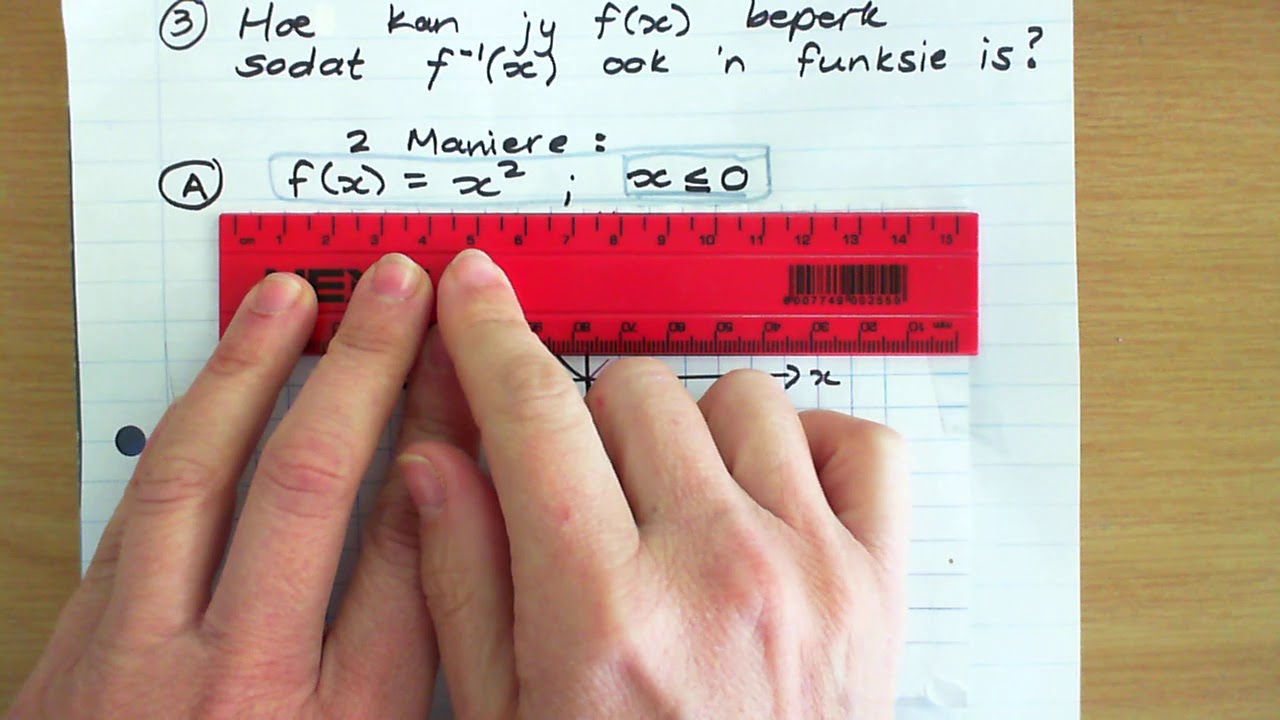 ③ Hoe kan jy f(x) beperk
sodat f⁻¹(x) ook 'n funksie is?
2 Maniere :
Ⓐ f(x) = x² ; x ≤ 0
cm 1 2 3 4 5 6 7 8 9 10 11 12 13 14 15
80 70 60 50 40 30 20 10 mm
x